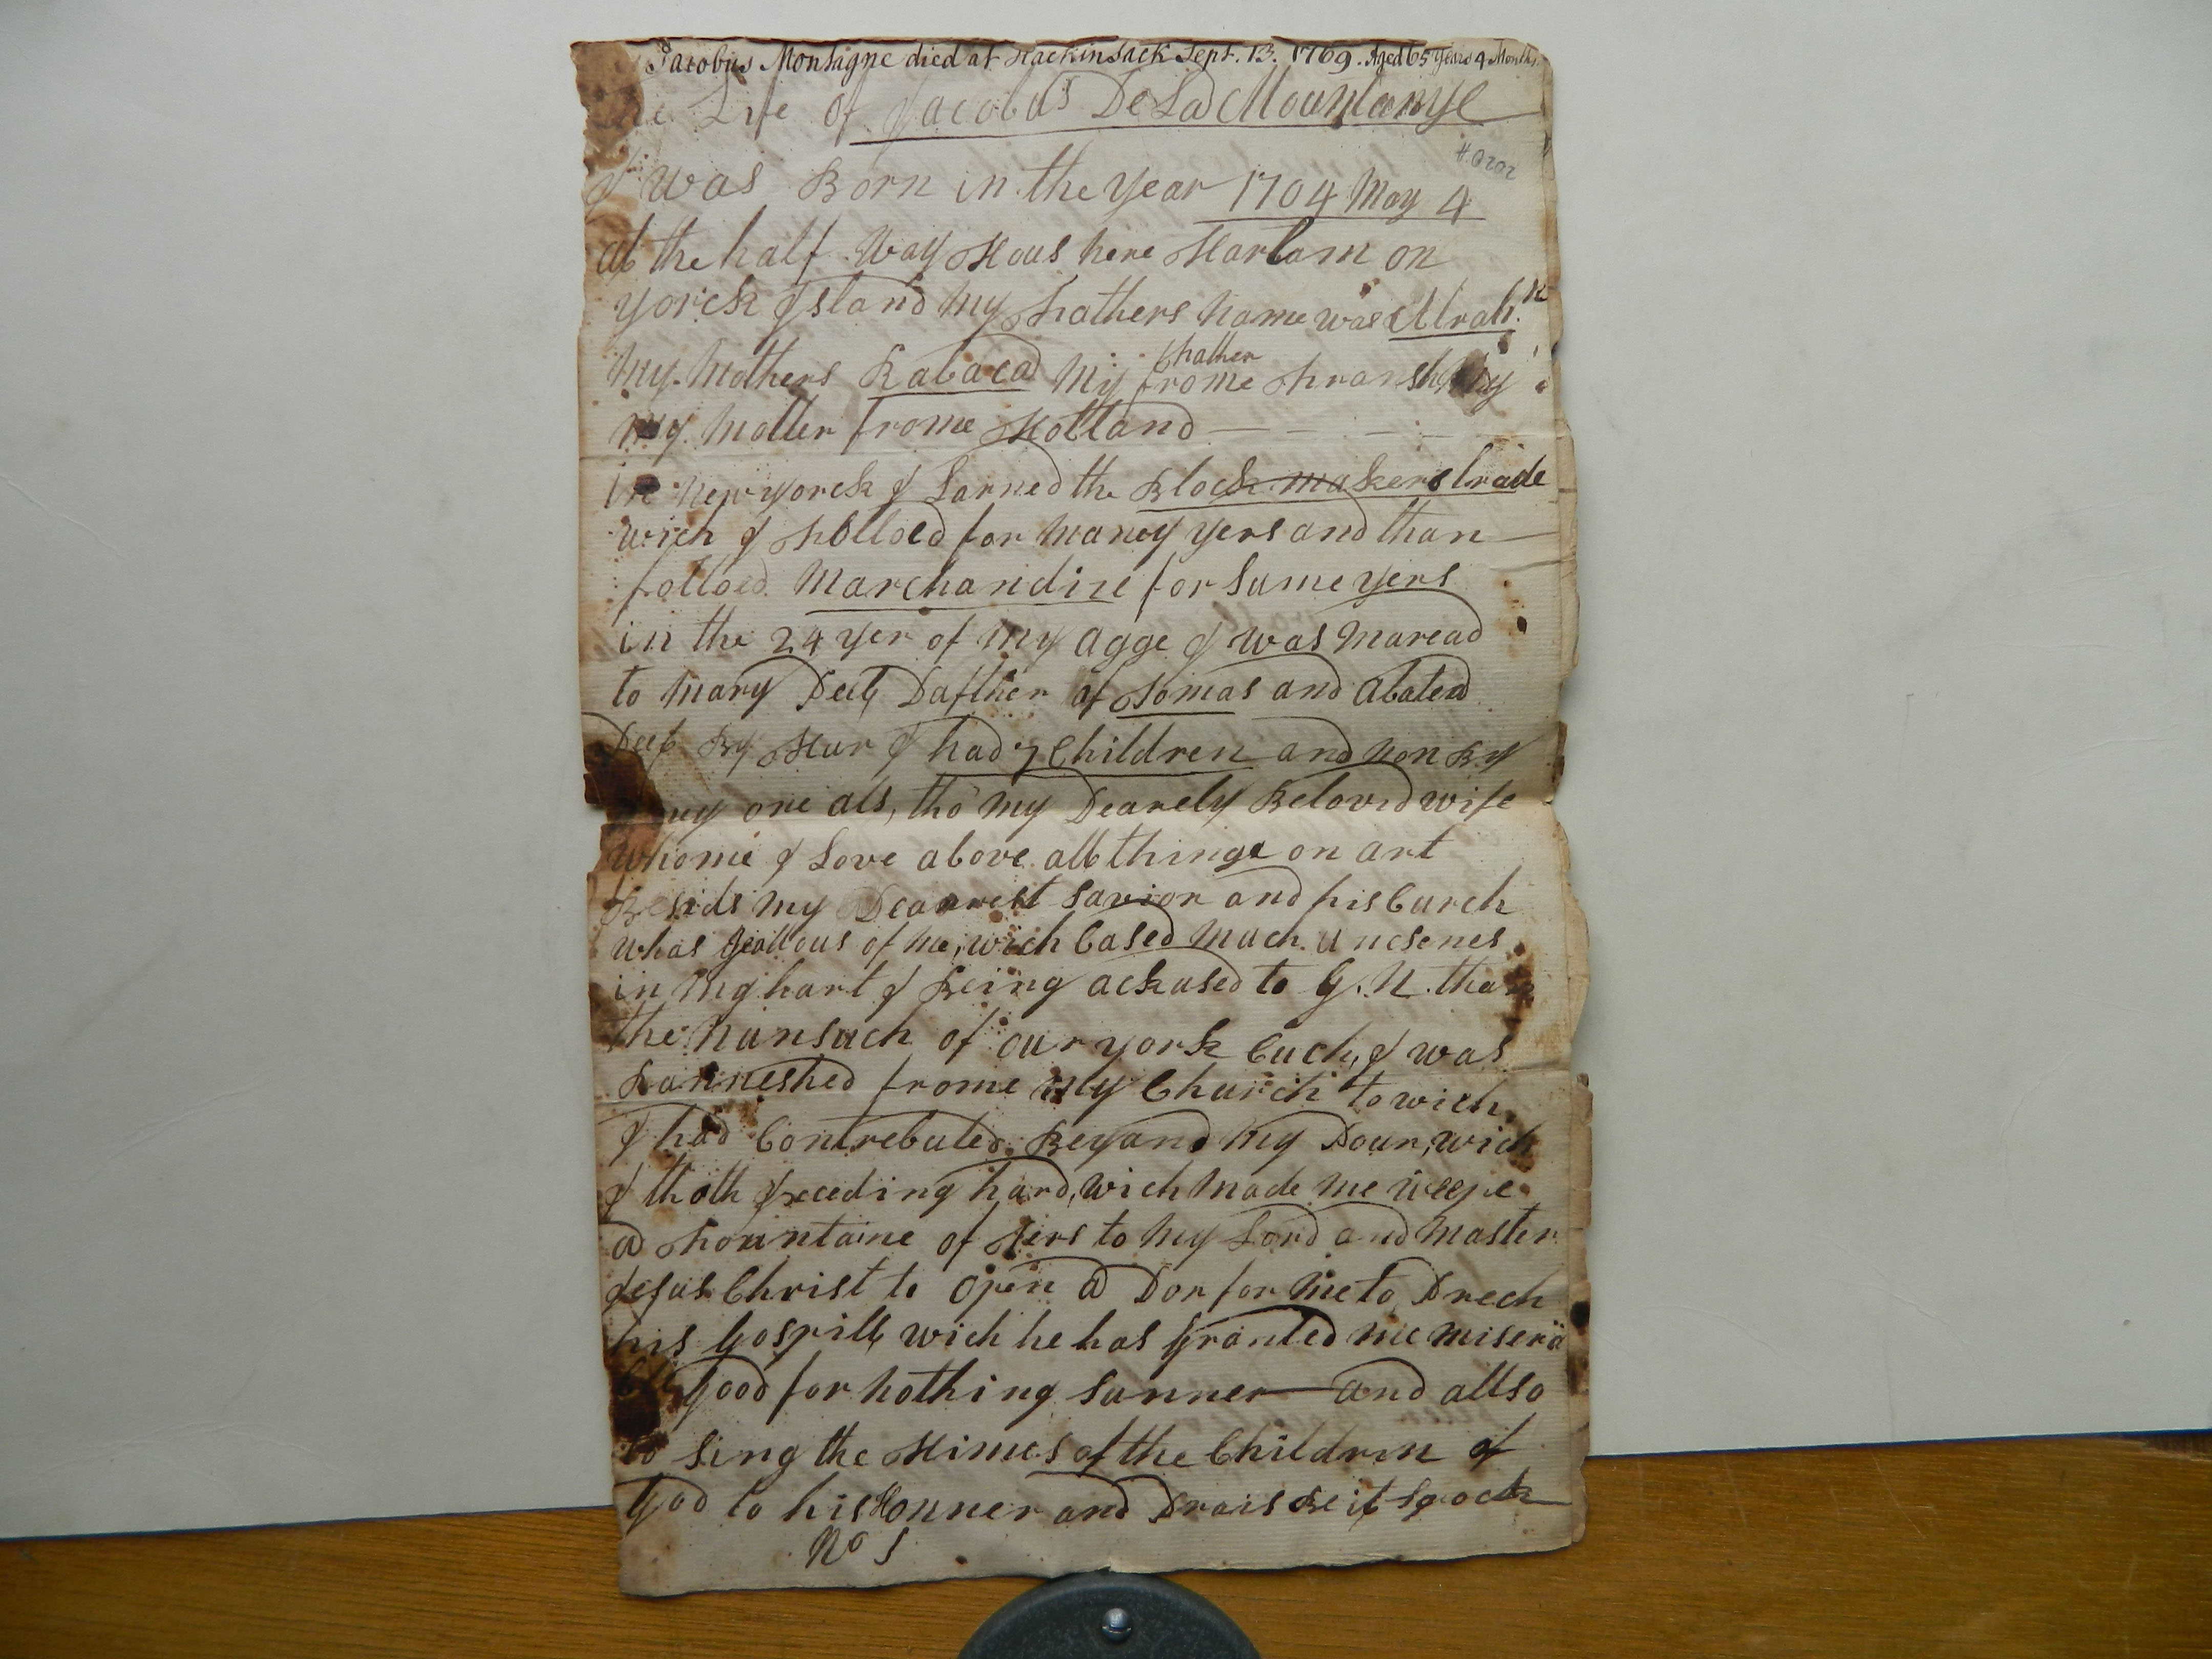 Jacobus Montagne died at Hackinsack Sept. 13. 1769. Aged 65 years 4 Months.
The Life of Jacobus De La Mountanye
H.0202
I was Born in the year 1704 May 4
at the half Way Hous here Harlam on
yorck Island my Fathers name was Abrah.m
my Mothers Rabaca My father frome
my Motter frome Holland — — — —
in new yorck I Larned the Block makers trade
wich I folloed for maney yers and than
folloed Marchandize for Sume yers
in the 24 yer of my agge I was Maread
to Mary Peel, Dafther of Tomas and
By Hur I had 7 Children and non By
one als, tho my Dearely Beloved wife
whome I Love above all things on art
Besids my Dearest Savior and his Curch
whas Jeallous of me, wich Cased Much uncsenes
in My hart I Being ackused to G. N. than
the of our york Cuch, I was
Banneshed frome my Church to wich
I had Contrebuted Beyand my Pour, wich
I thoth Exceding hard, wich made me weepe
a Fountaine of Ters to my Lord and Master
Jesus Christ to open a Dor for me to Prech
his Gospill, wich he has Granted me misera
good for nothing Sunner — and allso
to Sing the Himes of the Children of
God to his Honner and Prais Be it Spock
No 1